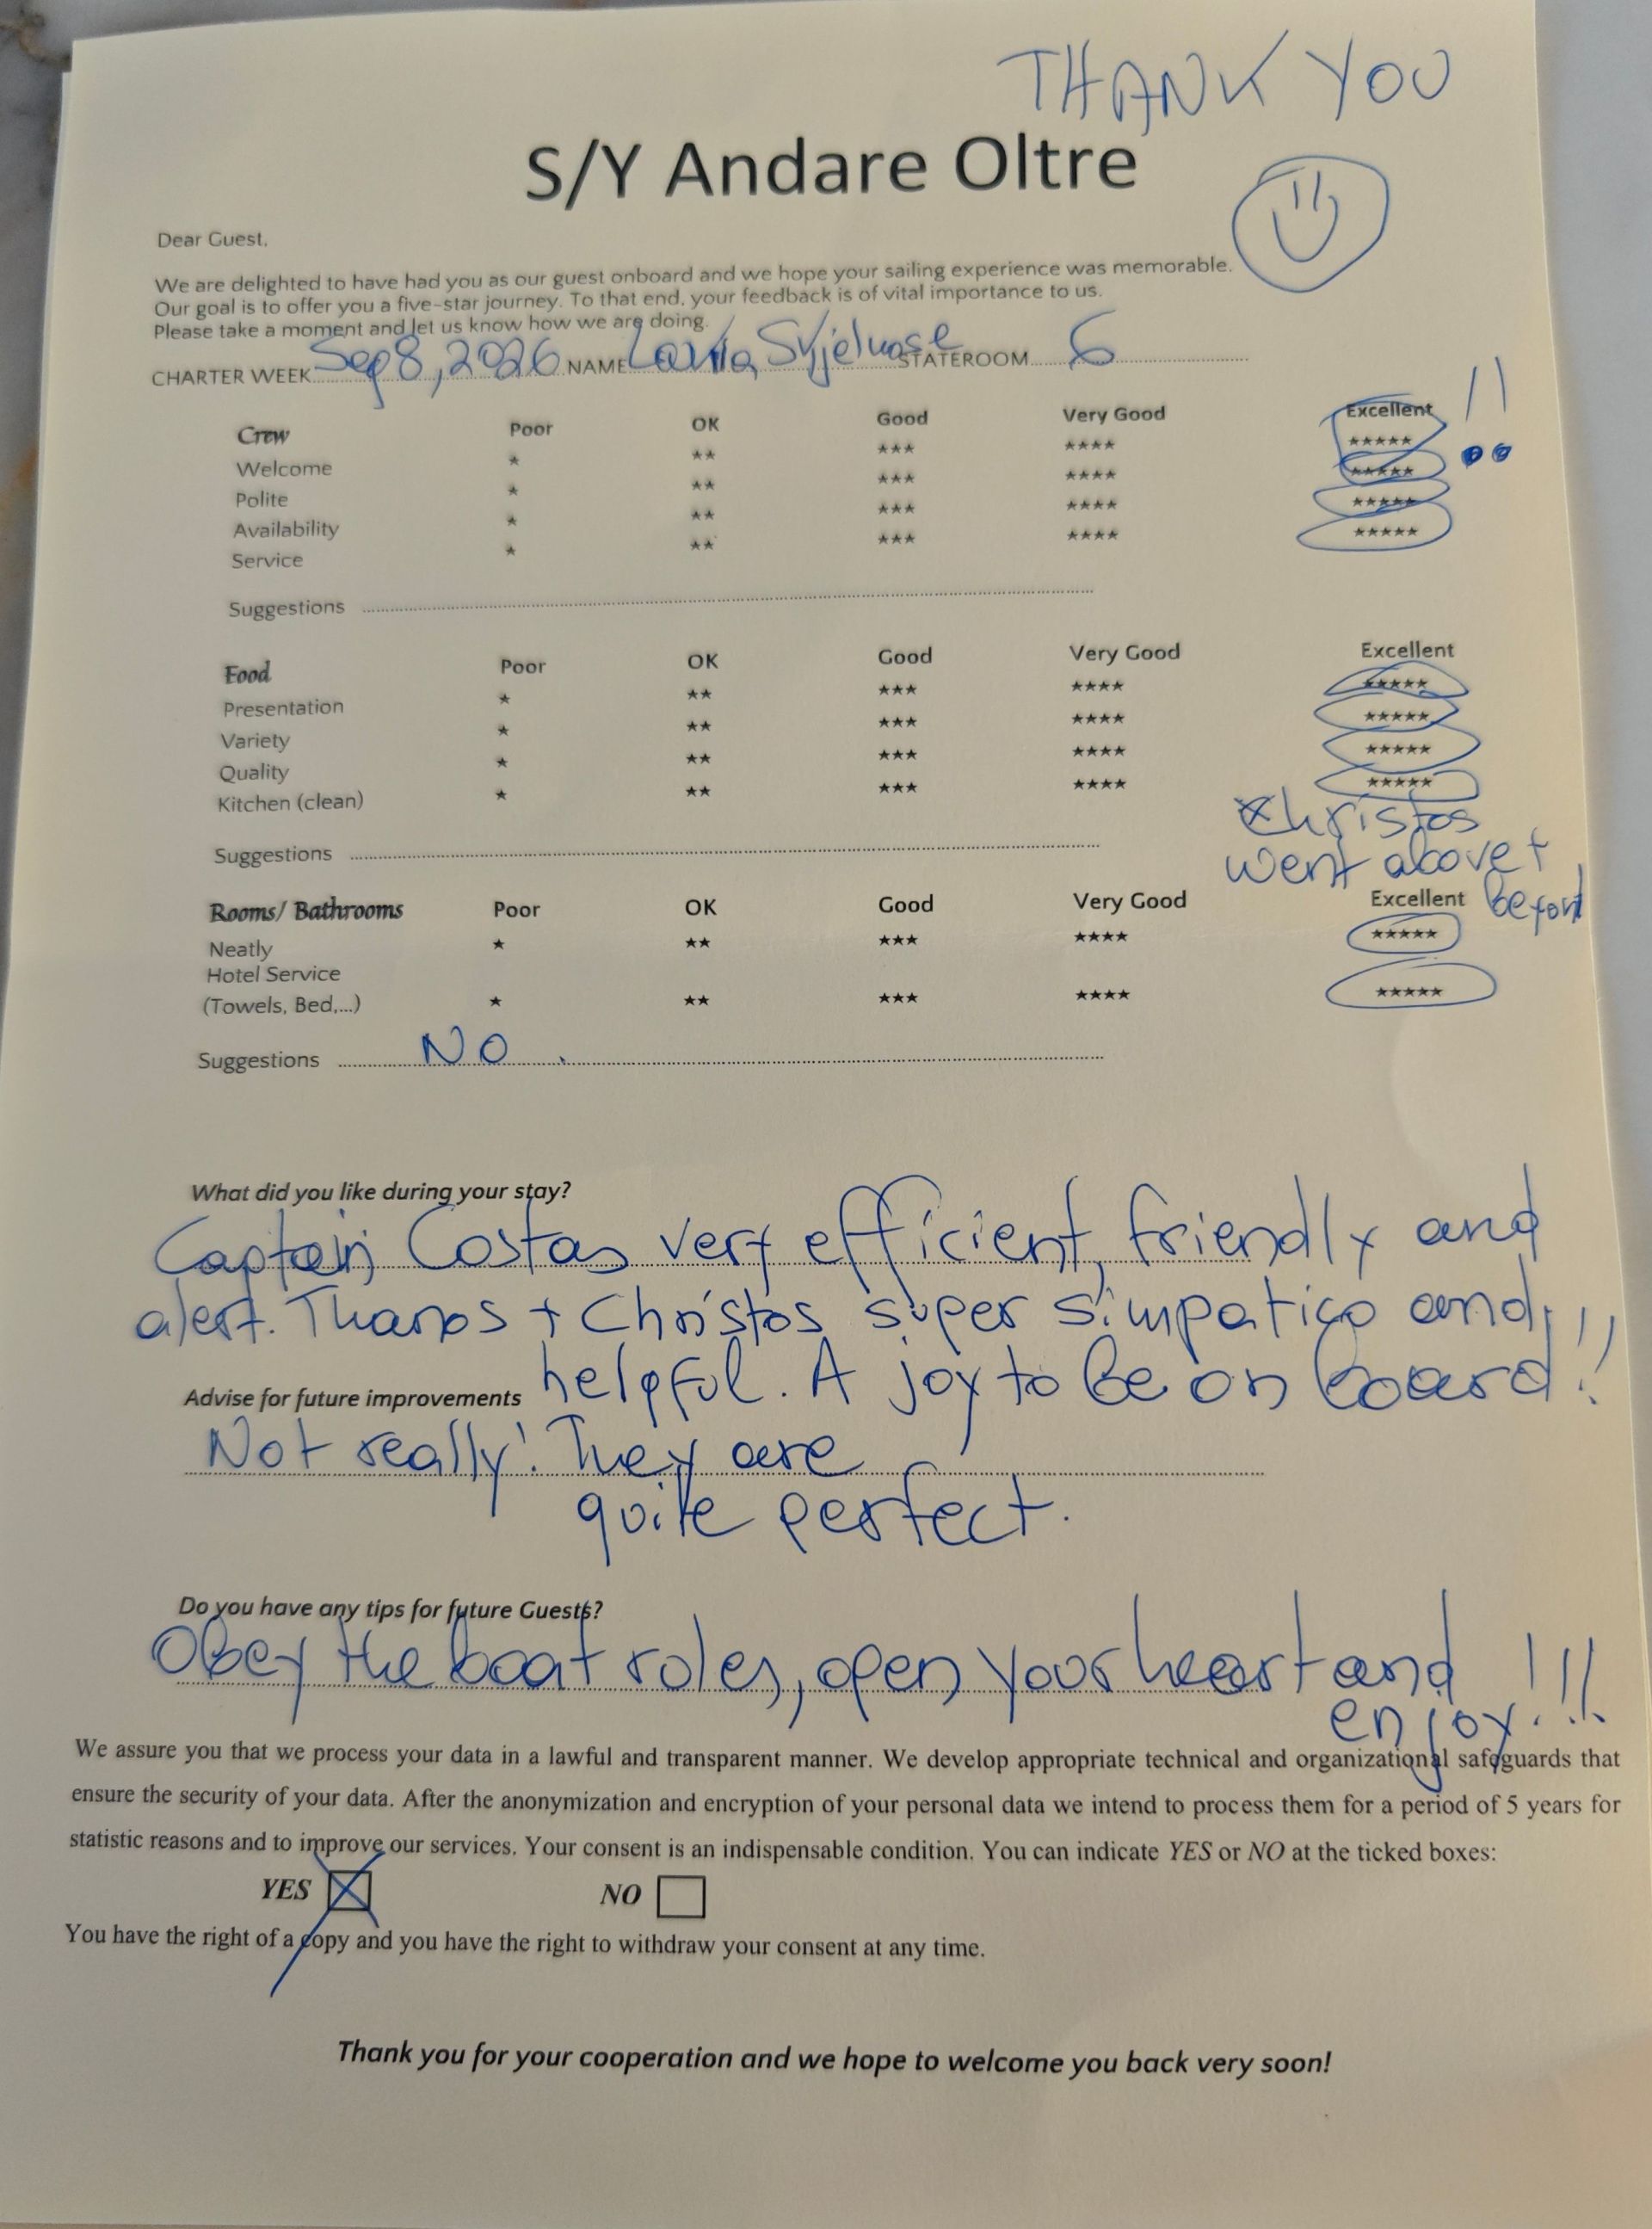 THANK YOU
S/Y Andare Oltre
Dear Guest,
We are delighted to have had you as our guest onboard and we hope your sailing experience was memorable.
Our goal is to offer you a five-star journey. To that end, your feedback is of vital importance to us.
Please take a moment and let us know how we are doing.
CHARTER WEEK Sep 8, 2026 NAME STATEROOM 6
Crew Poor OK Good Very Good Excellent !!
Welcome * ** *** **** *****
Polite * ** *** **** *****
Availability * ** *** **** *****
Service * ** *** **** *****
Suggestions
Food Poor OK Good Very Good Excellent
Presentation * ** *** **** *****
Variety * ** *** **** *****
Quality * ** *** **** *****
Kitchen (clean) * ** *** **** *****
Christos
went above +
Suggestions
beyond
Rooms/ Bathrooms Poor OK Good Very Good Excellent
Neatly * ** *** **** *****
Hotel Service
(Towels, Bed,...) * ** *** **** *****
Suggestions NO.
What did you like during your stay?
Captain Costas very efficient, friendly and
alert. Thanos + Christos super simpatico and
helpful. A joy to be on board!!!
Advise for future improvements
Not really! They are
quite perfect.
Do you have any tips for future Guests?
Obey the boat rules, open your heart and
enjoy!!!
We assure you that we process your data in a lawful and transparent manner. We develop appropriate technical and organizational safeguards that
ensure the security of your data. After the anonymization and encryption of your personal data we intend to process them for a period of 5 years for
statistic reasons and to improve our services. Your consent is an indispensable condition. You can indicate YES or NO at the ticked boxes:
YES NO
You have the right of a copy and you have the right to withdraw your consent at any time.
Thank you for your cooperation and we hope to welcome you back very soon!